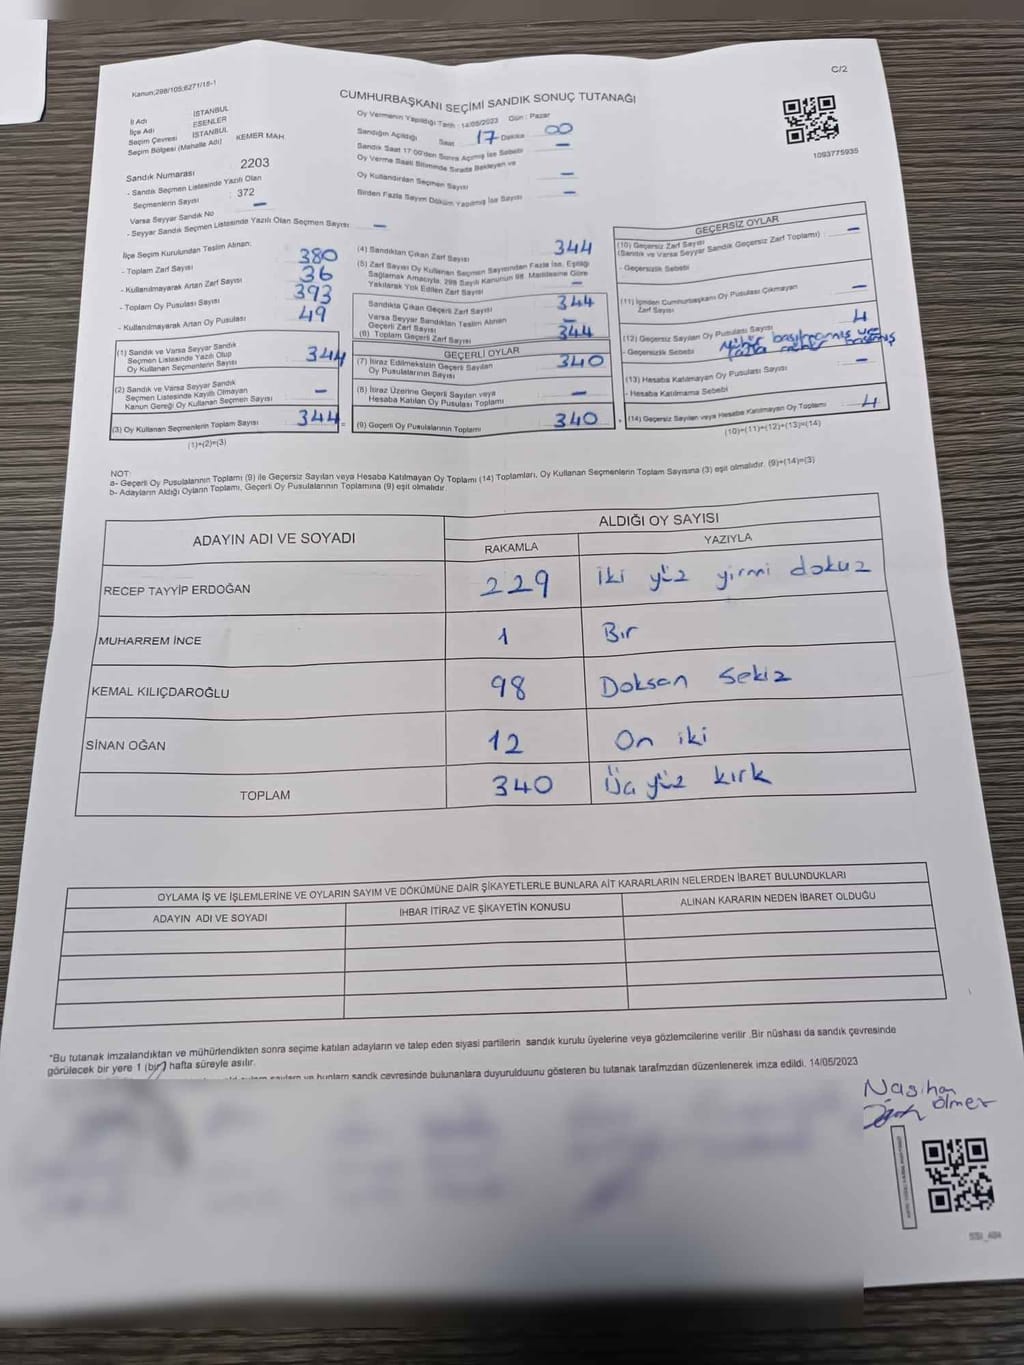 C/2
Kanun;298/105;6271/15-1
CUMHURBAŞKANI SEÇİMİ SANDIK SONUÇ TUTANAĞI
1093775935
İl Adı İSTANBUL
İlçe Adı ESENLER
Seçim Çevresi İSTANBUL
Seçim Bölgesi (Mahalle Adı) KEMER MAH
Sandık Numarası 2203
- Sandık Seçmen Listesinde Yazılı Olan
Seçmenlerin Sayısı : 372
Varsa Seyyar Sandık No –
- Seyyar Sandık Seçmen Listesinde Yazılı Olan Seçmen Sayısı –
Oy Vermenin Yapıldığı Tarih : 14/05/2023 Gün : Pazar
Sandığın Açıldığı Saat 17 Dakika 00
Sandık Saat 17:00'den Sonra Açılmış İse Sebebi –
Oy Verme Saati Bitiminde Sırada Bekleyen ve
Oy Kullandırılan Seçmen Sayısı –
Birden Fazla Sayım Döküm Yapılmış İse Sayısı –
İlçe Seçim Kurulundan Teslim Alınan:
- Toplam Zarf Sayısı 380
- Kullanılmayarak Artan Zarf Sayısı 36
- Toplam Oy Pusulası Sayısı 393
- Kullanılmayarak Artan Oy Pusulası 49
(1) Sandık ve Varsa Seyyar Sandık
Seçmen Listesinde Yazılı Olup
Oy Kullanan Seçmenlerin Sayısı 344
(2) Sandık ve Varsa Seyyar Sandık
Seçmen Listesinde Kayıtlı Olmayan
Kanun Gereği Oy Kullanan Seçmen Sayısı –
(3) Oy Kullanan Seçmenlerin Toplam Sayısı 344 =
(1)+(2)=(3)
(4) Sandıktan Çıkan Zarf Sayısı 344
(5) Zarf Sayısı Oy Kullanan Seçmen Sayısından Fazla İse, Eşitliği
Sağlamak Amacıyla, 298 Sayılı Kanunun 98. Maddesine Göre
Yakılarak Yok Edilen Zarf Sayısı –
Sandıkta Çıkan Geçerli Zarf Sayısı 344
Varsa Seyyar Sandıktan Teslim Alınan
Geçerli Zarf Sayısı –
(6) Toplam Geçerli Zarf Sayısı 344
GEÇERLİ OYLAR
(7) İtiraz Edilmeksizin Geçerli Sayılan
Oy Pusulalarının Sayısı 340
(8) İtiraz Üzerine Geçerli Sayılan veya
Hesaba Katılan Oy Pusulası Toplamı –
(9) Geçerli Oy Pusulalarının Toplamı 340 +
GEÇERSİZ OYLAR
(10) Geçersiz Zarf Sayısı
(Sandık ve Varsa Seyyar Sandık Geçersiz Zarf Toplamı) : –
- Geçersizlik Sebebi
(11) İçinden Cumhurbaşkanı Oy Pusulası Çıkmayan
Zarf Sayısı –
(12) Geçersiz Sayılan Oy Pusulası Sayısı 4
- Geçersizlik Sebebi Mühür basılmamış ve
fazla mühür basılmış
(13) Hesaba Katılmayan Oy Pusulası Sayısı –
- Hesaba Katılmama Sebebi
(14) Geçersiz Sayılan veya Hesaba Katılmayan Oy Toplamı 4
(10)+(11)+(12)+(13)=(14)
NOT:
a- Geçerli Oy Pusulalarının Toplamı (9) ile Geçersiz Sayılan veya Hesaba Katılmayan Oy Toplamı (14) Toplamları, Oy Kullanan Seçmenlerin Toplam Sayısına (3) eşit olmalıdır. (9)+(14)=(3)
b- Adayların Aldığı Oyların Toplamı, Geçerli Oy Pusulalarının Toplamına (9) eşit olmalıdır.
ADAYIN ADI VE SOYADI ALDIĞI OY SAYISI
RAKAMLA YAZIYLA
RECEP TAYYİP ERDOĞAN 229 iki yüz yirmi dokuz
MUHARREM İNCE 1 Bir
KEMAL KILIÇDAROĞLU 98 Doksan Sekiz
SİNAN OĞAN 12 On iki
TOPLAM 340 Üç yüz kırk
OYLAMA İŞ VE İŞLEMLERİNE VE OYLARIN SAYIM VE DÖKÜMÜNE DAİR ŞİKAYETLERLE BUNLARA AİT KARARLARIN NELERDEN İBARET BULUNDUKLARI
ADAYIN ADI VE SOYADI IHBAR İTİRAZ VE ŞİKAYETİN KONUSU ALINAN KARARIN NEDEN İBARET OLDUĞU
"Bu tutanak imzalandıktan ve mühürlendikten sonra seçime katılan adayların ve talep eden siyasi partilerin sandık kurulu üyelerine veya gözlemcilerine verilir .Bir nüshası da sandık çevresinde
görülecek bir yere 1 (bir) hafta süreyle asılır.
sandık çevresinde bulunanlara duyurulduunu gösteren bu tutanak tarafmzdan düzenlenerek imza edildi. 14/05/2023
Nagihan
ölmez